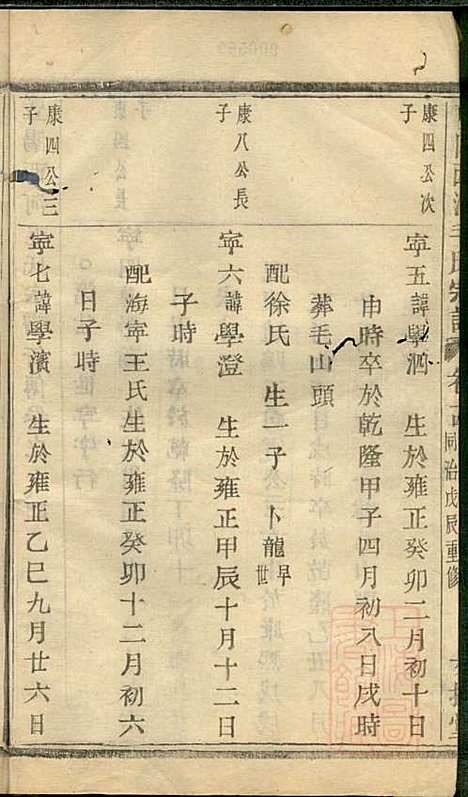 氏宗譜 卷 同治戊辰重修
康四公次子
寧五諱學泗 生於雍正癸卯二月初十日
申時卒於乾隆甲子四月初八日戌時
葬毛山頭
配徐氏 生一子 卜龍早世
康八公長子
寧六諱學澄 生於雍正甲辰十月十二日
子時
配海寧王氏生於雍正癸卯十二月初六
日子時
康四公三子
寧七諱學濱 生於雍正乙巳九月廿六日